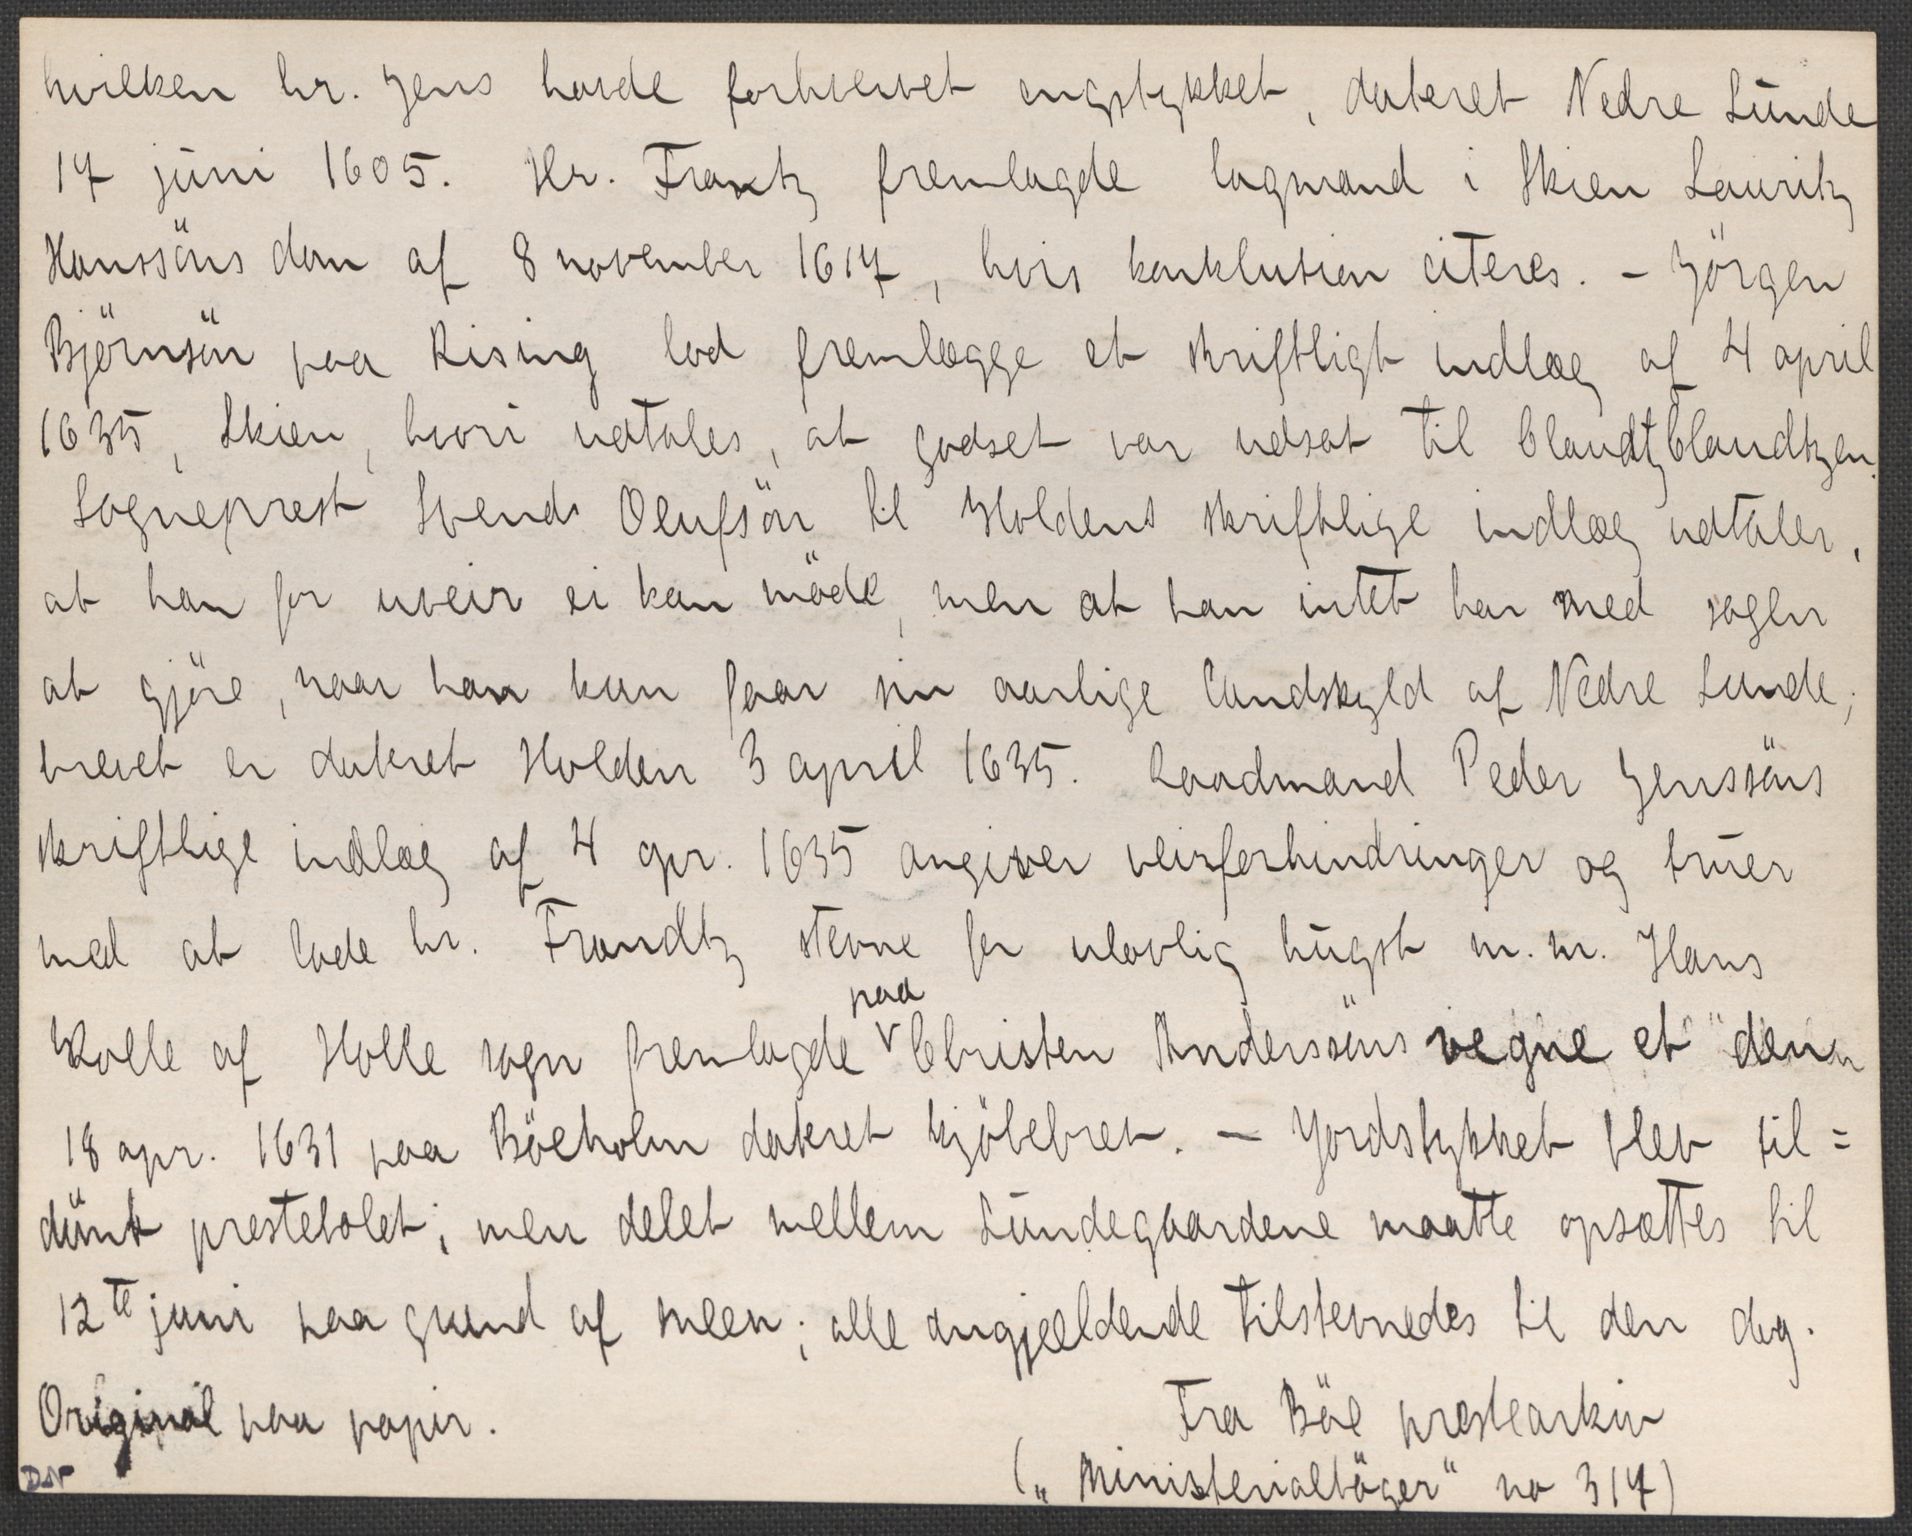 hvilken hr. Jens havde forhvervet engstykket, dateret Nedre Lunde
17 juni 1605. Hr. Frantz fremlagde lagmand i Skien Lauritz
Hanssöns dom af 8 november 1617, hvis konklusion citeres. - Jörgen
Björnsön paa Rising lod fremlægge et skriftligt indlæg af 4 april
1635, Skien, hvori udtales, at godset var udsat til Claudtz Claudtzen.
Sogneprest Svend Olufsön til Holdens skriftlige indlæg udtaler,
at han for uveir ei kan möde, men at han intet har med sagen
at gjöre, naar han kun faar sin aarlige landskyld af Nedre Lunde;
brevet er dateret Holden 3 april 1635. Raadmand Peder Jenssöns
skriftlige indlæg af 4 apr. 1635 angiver veirforhindringer og truer
med at lade hr. Frandtz stevne for ulovlig hugst m.m. Hans
Kolle af Holle sogn fremlagde paa Christen Anderssöns vegne et den
18 apr. 1631 paa Böeholm dateret kjöbebrev. — Jordstykket blev til=
dömt prestebolet; men delet mellem Lundegaardene maatte opsættes til
12te juni paa grund af sneen; alle angjældende tilstevnedes til den dag.
Original paa papir.
Fra Böe prestearkiv
(„Ministerialböger" no 317)
DN